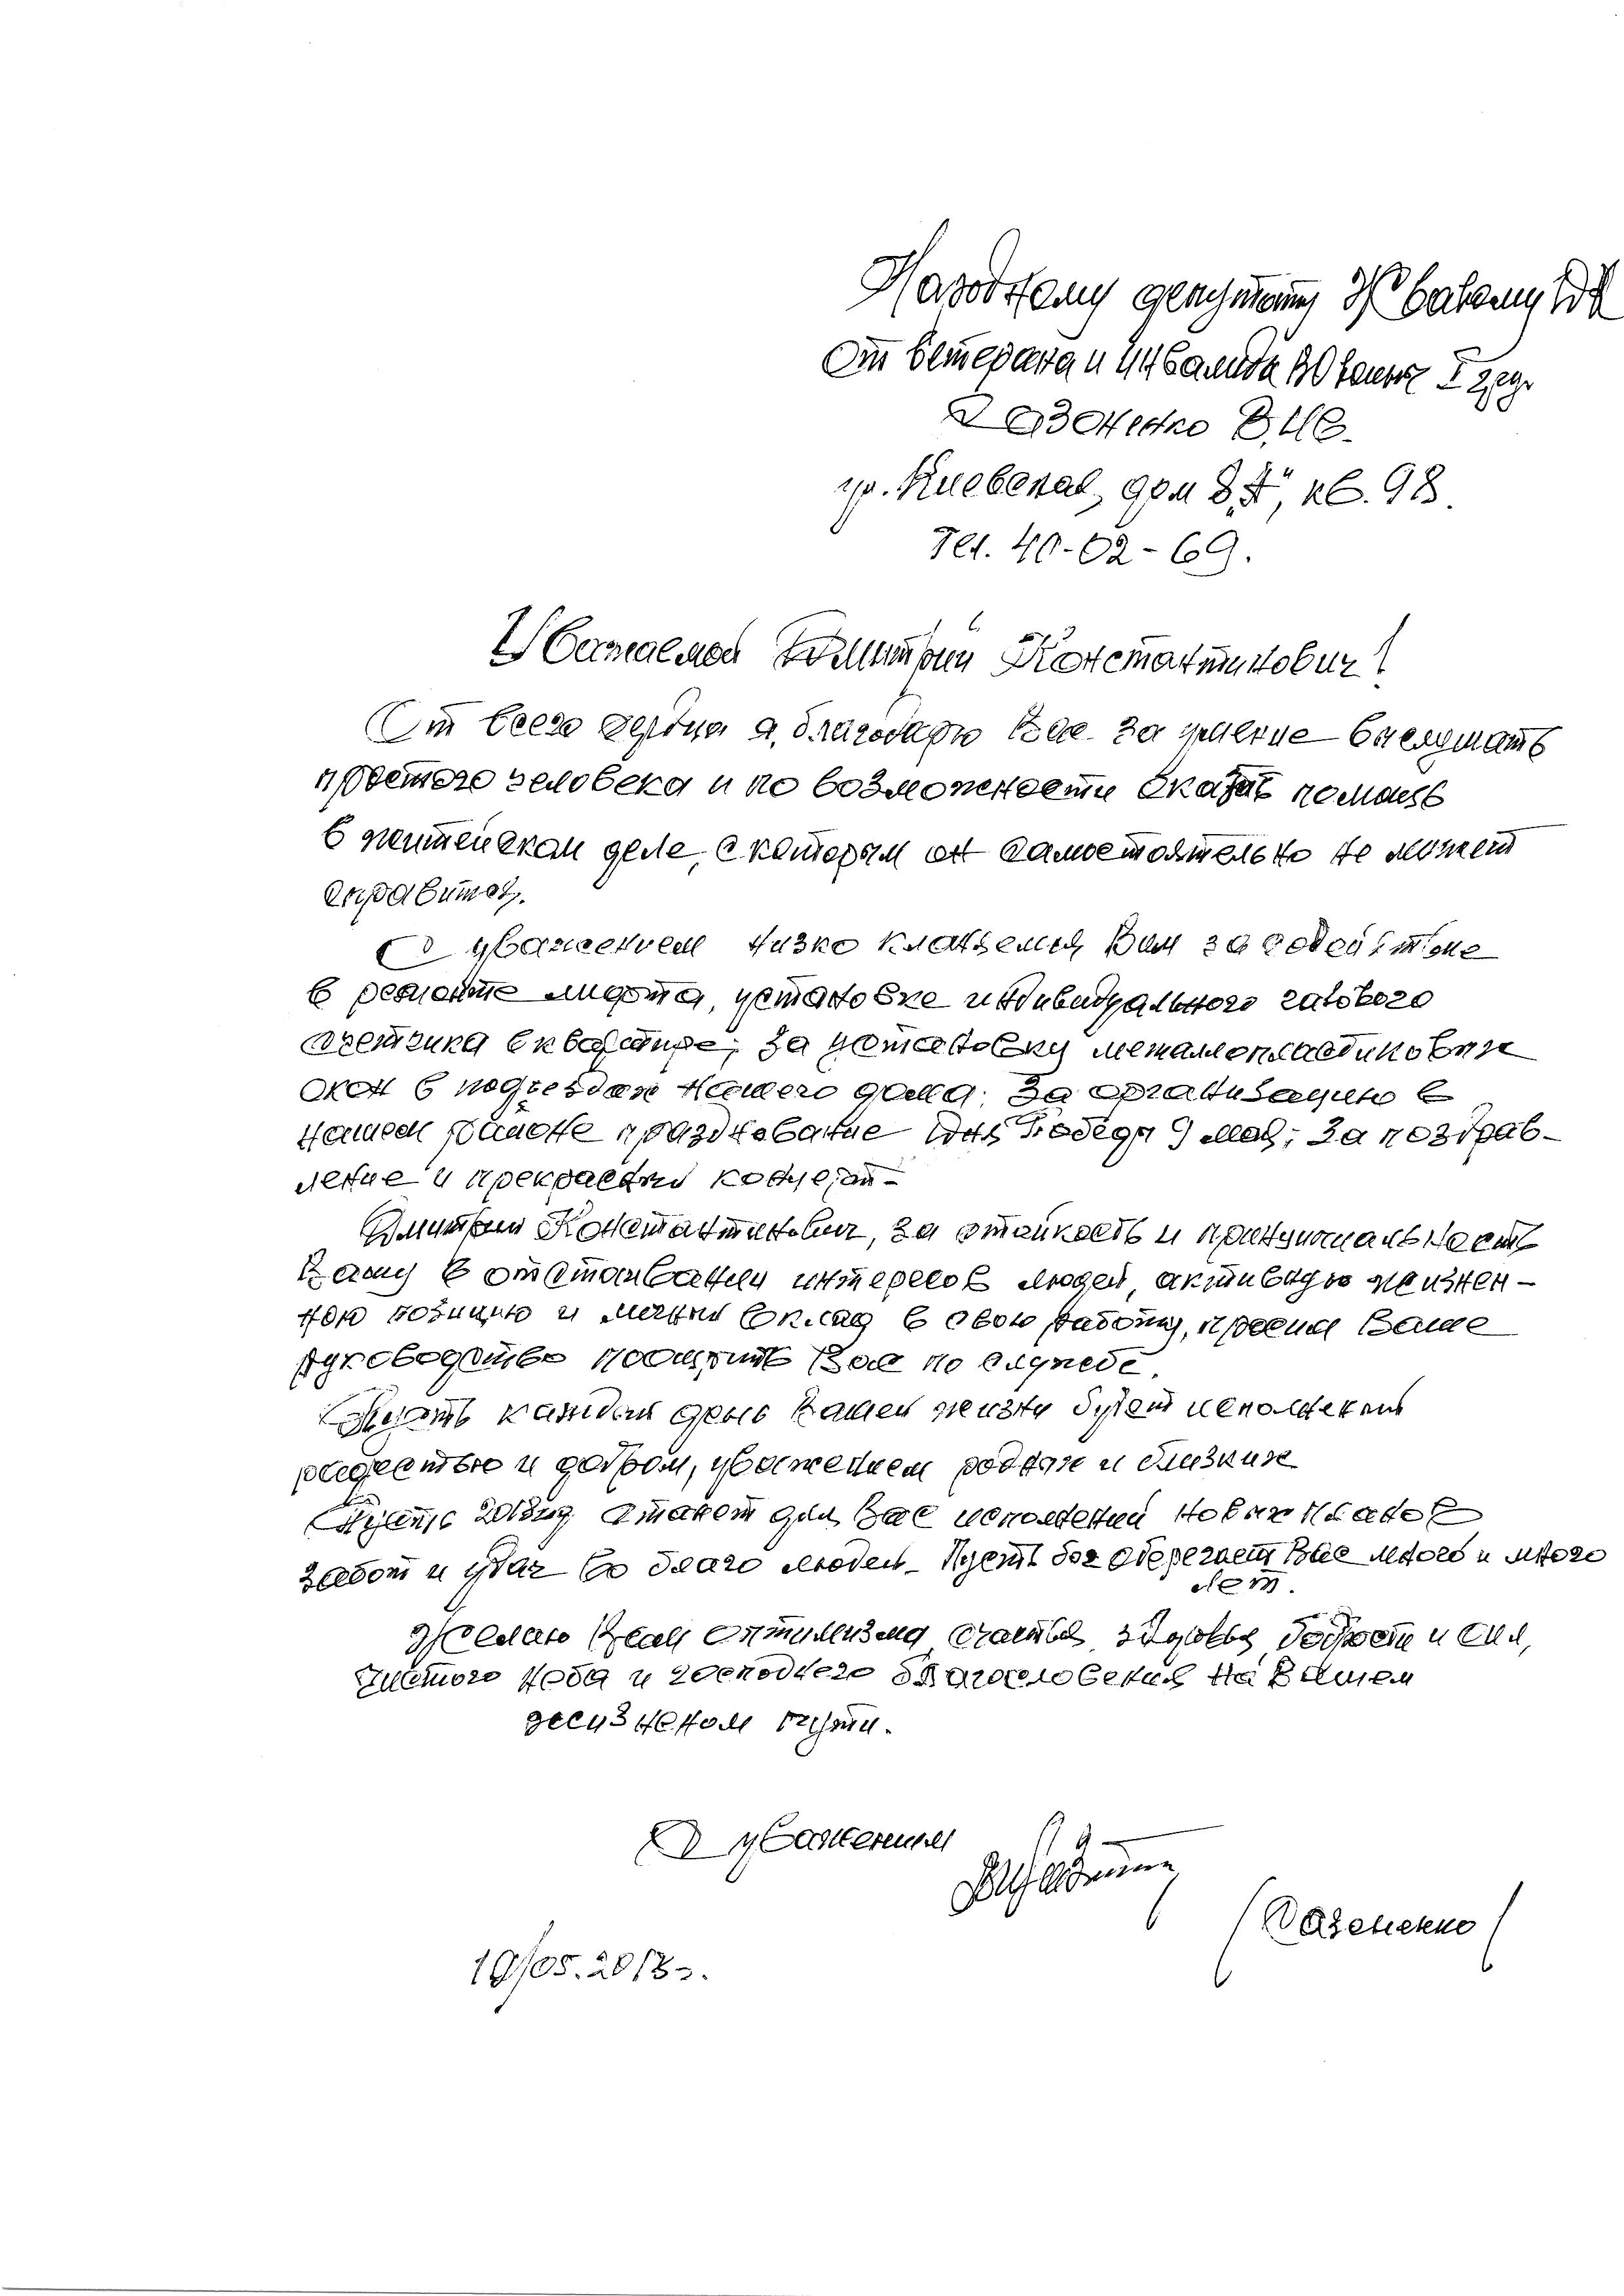 Народному депутату Жвакому ДК
От ветерана и инвалида войны I гр.
В.И.
ул. Киевская, дом 8, кв. 98.
Тел. 40-02-69.
Уважаемый Дмитрий Константинович!
От всего сердца я благодарю Вас за умение выслушать
простого человека и по возможности оказать помощь
в житейском деле, с которым он самостоятельно не может
справиться.
С уважением низко кланяемся Вам за содействие
в ремонте лифта, установке индивидуального газового
счетчика в квартире; за установку металлопластиковых
окон в подъездах нашего дома; за организацию в
нашем районе празднования Дня Победы 9 мая; за поздрав-
ление и прекрасный концерт.
Дмитрий Константинович, за отзывчивость и принципиальность
Вашу в отстаивании интересов людей, активную жизнен-
ную позицию и личный вклад в свою работу, просим Ваше
руководство поощрить Вас по заслуге.
Пусть каждый день Вашей жизни будет исполнен
радостью и добром, уважением родных и близких
Пусть 2018 год станет для Вас исполнением новых планов
забот и удач во благо людей. Пусть Бог сбережет Вас много и много
лет.
Желаю Вам оптимизма, счастья, здоровья, бодрости и сил,
чистого неба и господнего благословения на Вашем
жизненном пути.
С уважением
10/05.2018 г.